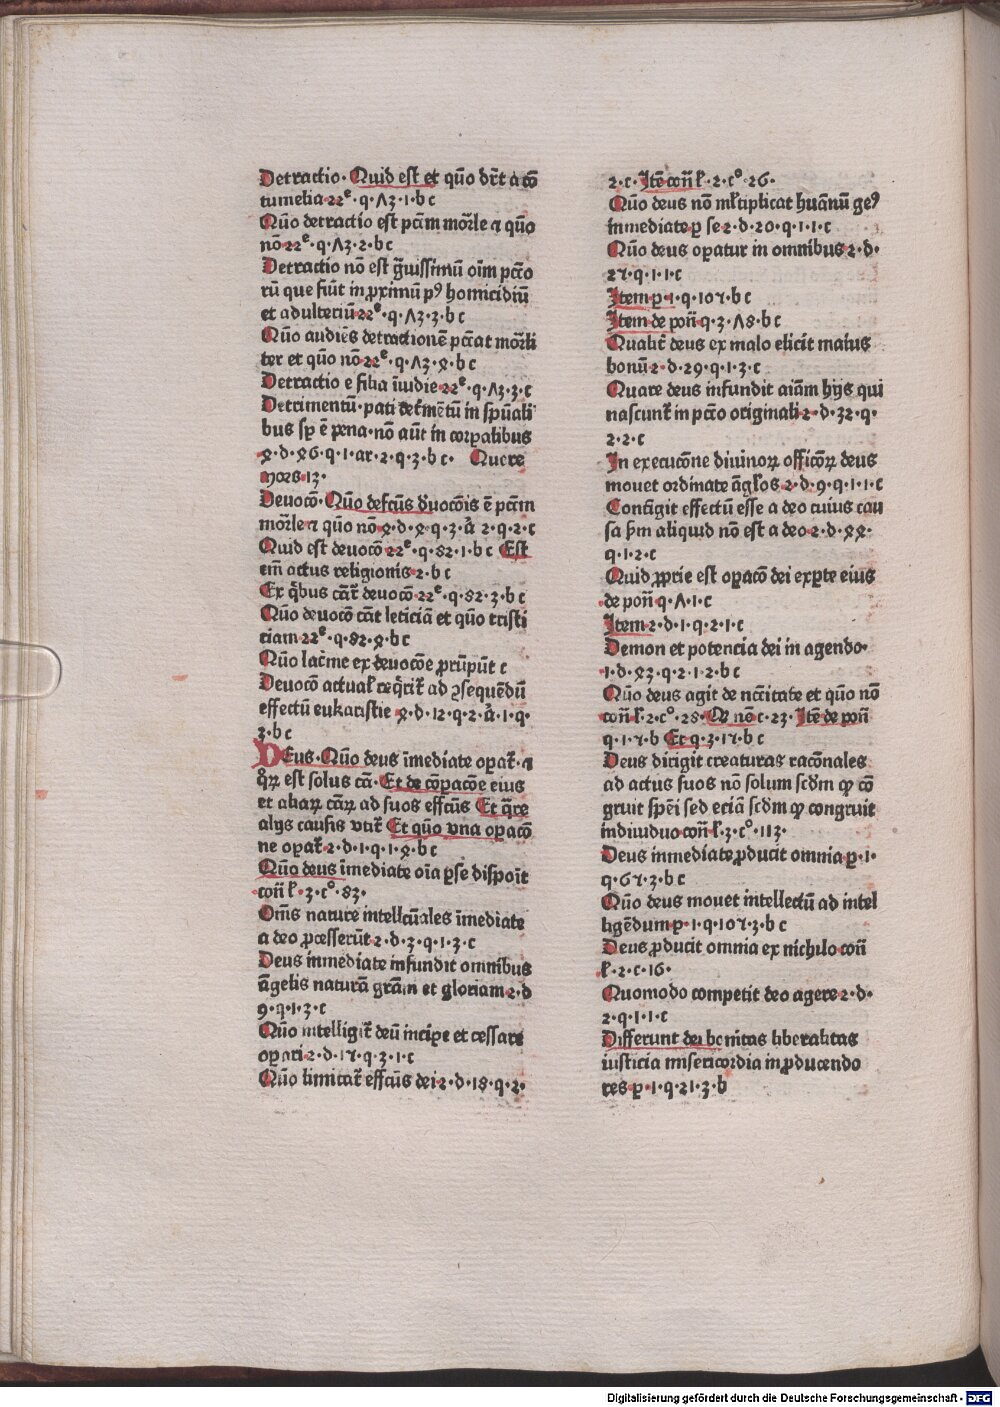 Detractio· Quid est et quō dr̄t a cō
tumelia 22ᵉ·q·Λ3·1·b c
Quō detractio est pctm̄ mor̄le ⁊ quō
nō 22ᵉ·q·Λ3·2·b c
Detractio nō est ḡuissimū oīm pctō
rū que fiūt in ꝓximū pꝰ homicidiū
et adulteriū 22ᵉ·q·Λ3·3·b c
Quō audiēs detractionē pctat mor̄li
ter et quō nō 22ᵉ·q·Λ3·ꝝ·b c
Detractio e filia īuidie 22ᵉ·q·Λ3·3·c
Detrimentū· pati det̄mētū in spūali
bus sꝑ ē pena· nō aūt in corꝑalibus
ꝝ·d·ꝝ6·q·1·ar·2·q·3·b c· Quere
mors·13·
Deuocō· Quō defcūs duocōis ē pctm̄
mor̄le ⁊ quō nō ꝝ·d·ꝝ·q·3·a̓ 2·q·2·c
Quid est deuocō 22ᵉ·q·82·1·b c Est
em̄ actus religionis 2·b c
Ex q̄bus cāt̄ deuocō 22ᵉ·q·82·3·b c
Quō deuocō cāt leticiā et quō tristi
ciam 22ᵉ·q·82·ꝝ·b c
Quō lac̄me ex deuocōe ꝓrūpūt c
Deuocō actual̄ req̄rit̄ ad ꝯsequēdū
effectū eukaristie ꝝ·d·12·q·2·a̓·1·q·
3·b c
DEus· Quō deus īmediate opat̄· ⁊
qͦꝝ est solus cā· Et de cōpacōe eius
et aliaꝝ cāꝝ ad suos effcūs Et q̄re
alijs causis vtit̄ Et quō vna opacō
ne opat̄ 2·d·1·q·1·ꝝ·b c
Quō deus īmediate oīa ꝑ se dispoīt
con̄ l̄·3·c°·83·
Om̄s nature intellcūales īmediate
a deo ꝓcesserūt 2·d·3·q·1·3·c
Deus inmediate infundit omnibus
āgelis naturā grām et gloriam 2·d
9·q·1·3·c
Quō intelligit̄ deū incipe et cessare
opari 2·d·17·q·3·1·c
Quō limitat̄ effcūs dei 2·d·18·q·2·
2·c· Itē con̄ l̄·2·c°·26·
Quō deus nō ml̄tiplicat huānū geꝰ
inmediate ꝑ se 2·d·20·q·1·1·c
Quō deus opatur in omnibus 2·d·
27·q·1·1·c
Item ꝑ·1·q·107·b c
Item de pon̄ q·3·Λ8·b c
Qualit̄ deus ex malo elicit maius
bonū 2·d·29·q·1·3·c
Quare deus infundit aiām hijs qui
nascunt̄ in pctō originali 2·d·32·q·
2·2·c
In execucōne diuinoꝝ officōꝝ deus
mouet ordinate āglos 2·d·9·q·1·1·c
Contīgit effectū esse a deo cuius cau
sa ꝑm aliquid nō est a deo 2·d·ꝝꝝ·
q·1·2·c
Quid ꝓprie est opacō dei ex ꝑte eius
de pon̄ q·Λ·1·c
Item 2·d·1·q·2·1·c
Demon et potencia dei in agendo·
1·d·ꝝ3·q·2·1·2·b c
Quō deus agit de ncc̄itate et quō nō
con̄ l̄·2·c°·28· De nō c·23· Itē de pon̄
q·1·7·b Et q·3·17·b c
Deus dirigit creaturas racōnales
ad actus suos nō solum scdm ꝙ cō
gruit spēi sed eciā scdm ꝙ congruit
indiuiduo con̄ l̄·3·c°·113·
Deus inmediate ꝓducit omnia ꝑ·1·
q·67·3·b c
Quō deus mouet intellectū ad intel
ligēdum ꝑ·1·q·107·3·b c
Deus ꝓducit omnia ex nichilo con̄
l̄·2·c·16·
Quomodo competit deo agere 2·d·
2·q·1·1·c
Differunt dei bonitas liberalitas
iusticia misericordia in ꝓducendo
res ꝑ·1·q·21·3·b
Digitalisierung gefördert durch die Deutsche Forschungsgemeinschaft · DFG